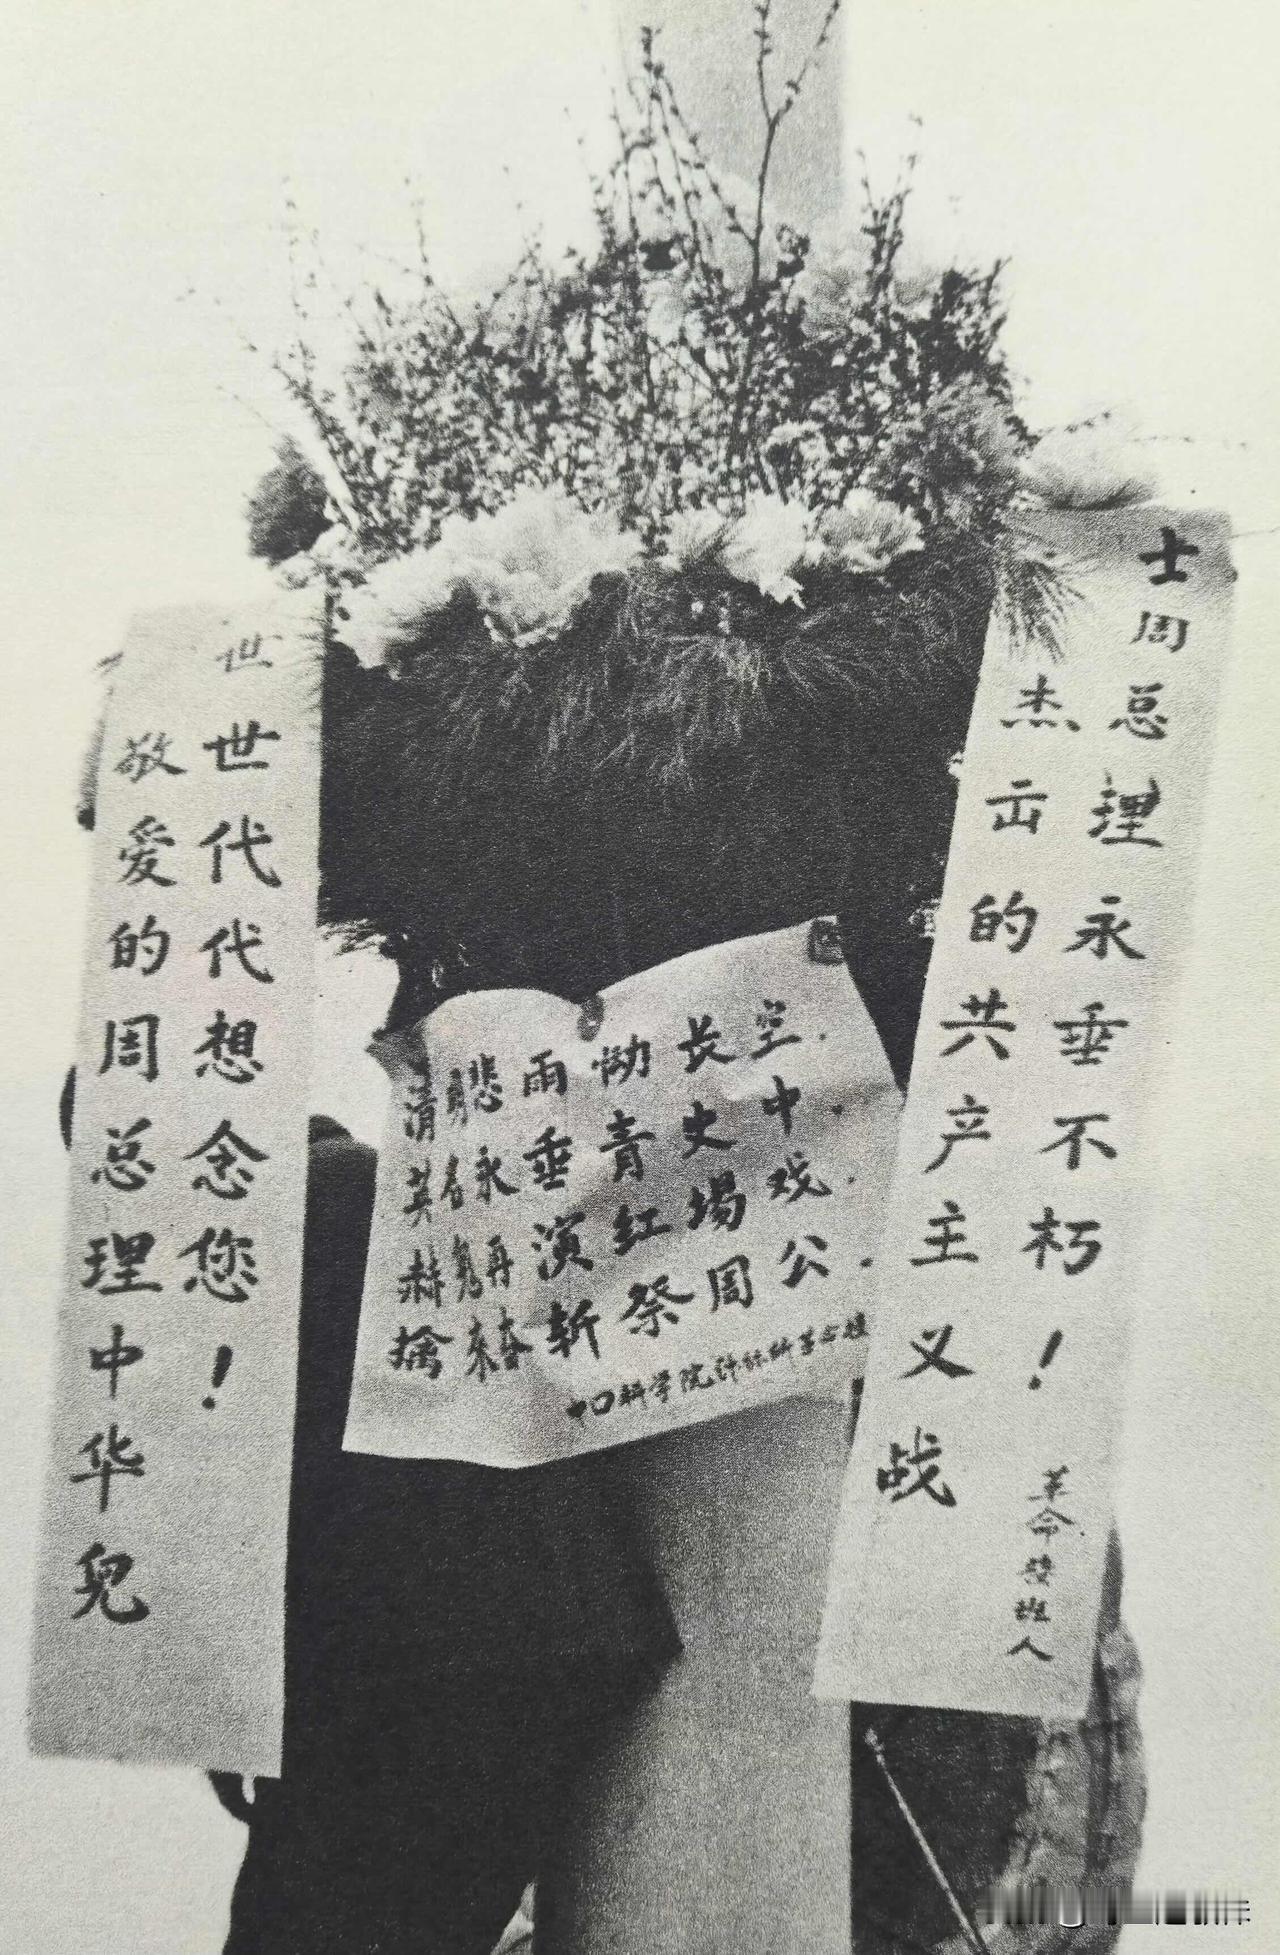 敬爱的周总理中华兒
世世代代想念您！
清明悲雨恸长空.
英名永垂青史中.
赫鬼再演红場戏.
擒来奋斩祭周公.
中口科学院
杰出的共产主义战
士周总理永垂不朽！
革命接班人